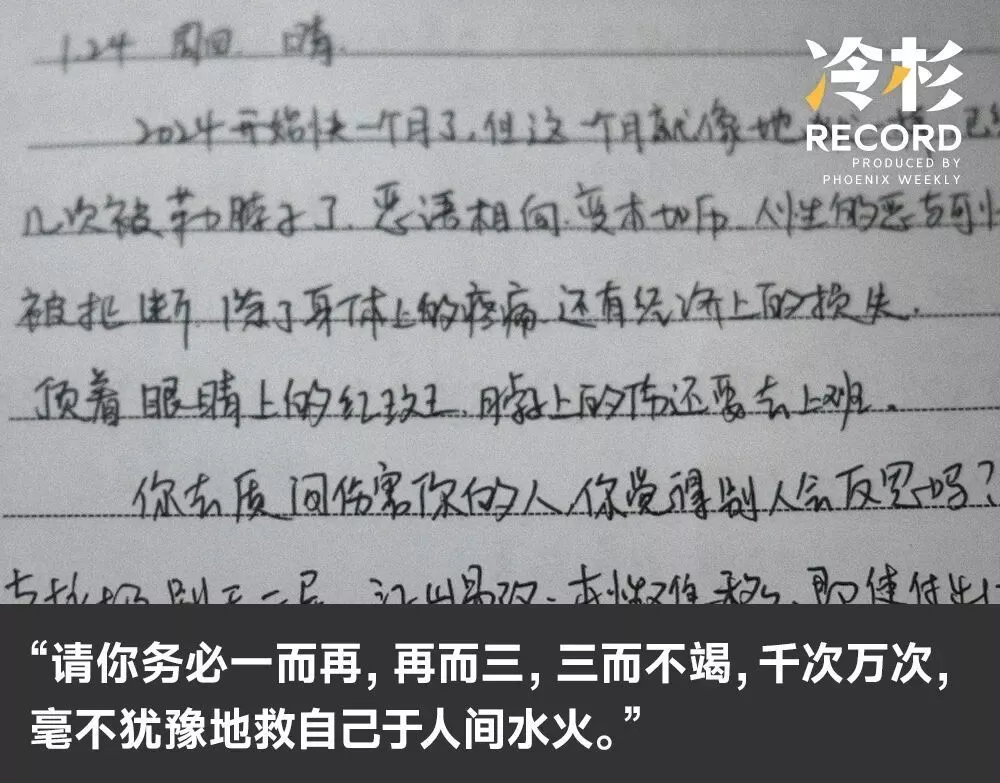 1.24 周四 晴.
2024开始快一个月了,但这一个月就像地
几次被勒脖子了.恶语相向.变本加厉.人性的恶与可
被 断.除了身体上的疼痛 还有经济上的损失.
顶着眼睛上的红 ,脖上的伤还要去上班.
你去质问伤害你的人,你觉得别人会反思吗?
江山易改.本性难移.即使付出
冷杉
RECORD
PRODUCED BY
PHOENIX WEEKLY
“请你务必一而再，再而三，三而不竭，千次万次，
毫不犹豫地救自己于人间水火。”